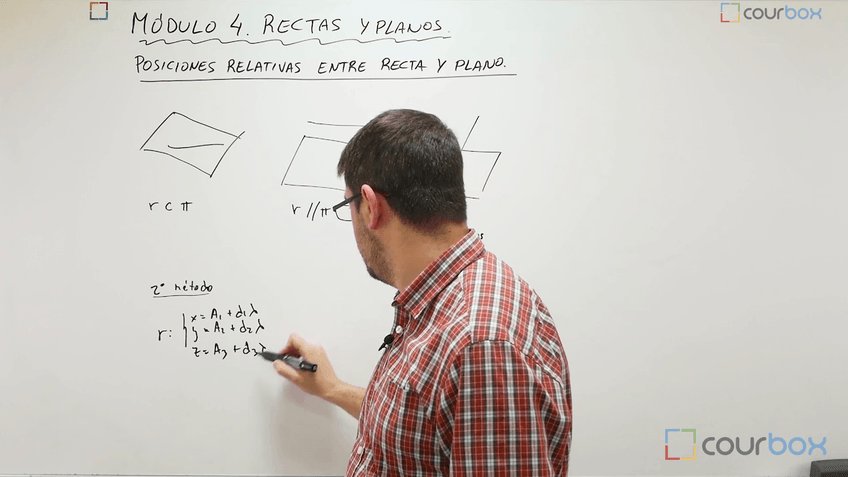 MÓDULO 4. RECTAS Y PLANOS.
courbox
POSICIONES RELATIVAS ENTRE RECTA Y PLANO.
r ⊂ π
r // π
2º método
r: { x = A₁ + d₁λ
y = A₂ + d₂λ
z = A₃ + d₃λ
courbox